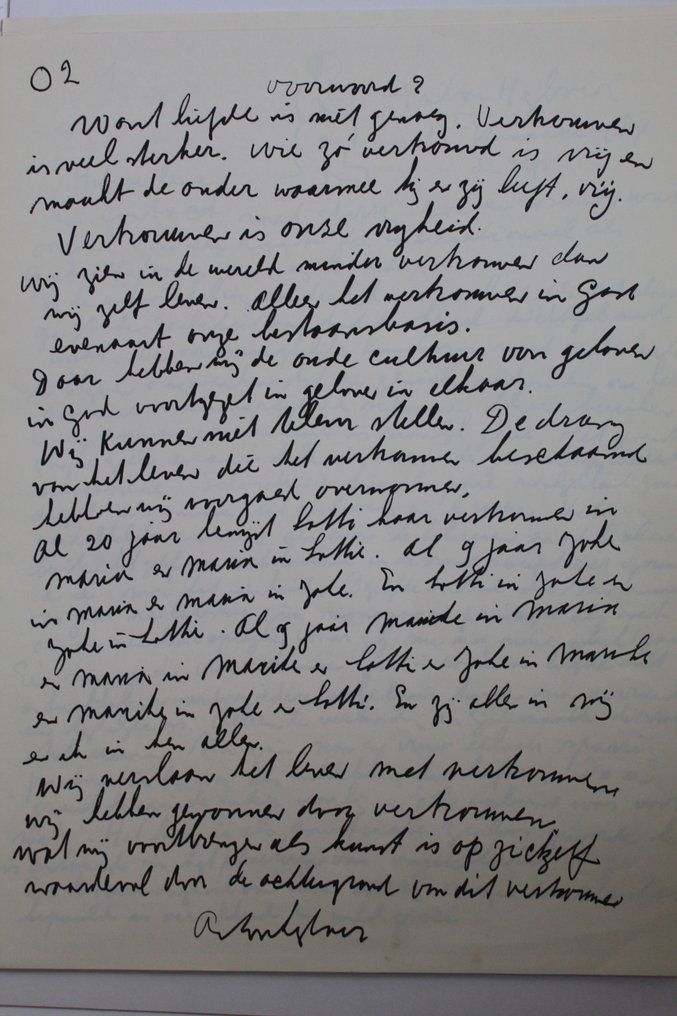 02
voorwoord?
Want liefde is niet genoeg. Vertrouwen
is veel sterker. Wie zó vertrouwd is vrij en
maakt de ander waarmee hij er zij leeft, vrij.
Vertrouwen is onze vrijheid.
Wij zien in de wereld minder vertrouwen dan
wij zelf leven. Alleen het vertrouwen in God
evenaart onze bestaansbasis.
Daar hebben wij de oude cultuur van geloven
in God voortgezet in geloven in elkaar.
Wij kunnen niet teleur stellen. De drang
van het leven die het vertrouwen beschaamd
hebben wij voorgoed overwonnen.
Al 20 jaar Lotti haar vertrouwen in
Maria en Maria in Lotti. Al 9 jaar
in Maria en Maria in. En Lotti in en
in Lotti. Al 9 jaar in Maria
en Maria in en Lotti en in
en in en Lotti. En zij allen in mij
en ik in hen allen.
Wij verslaan het leven met vertrouwen
wij hebben gewonnen door vertrouwen
wat wij voortbrengen als kunst is op zichzelf
waardevol door de achtergrond van dit vertrouwen